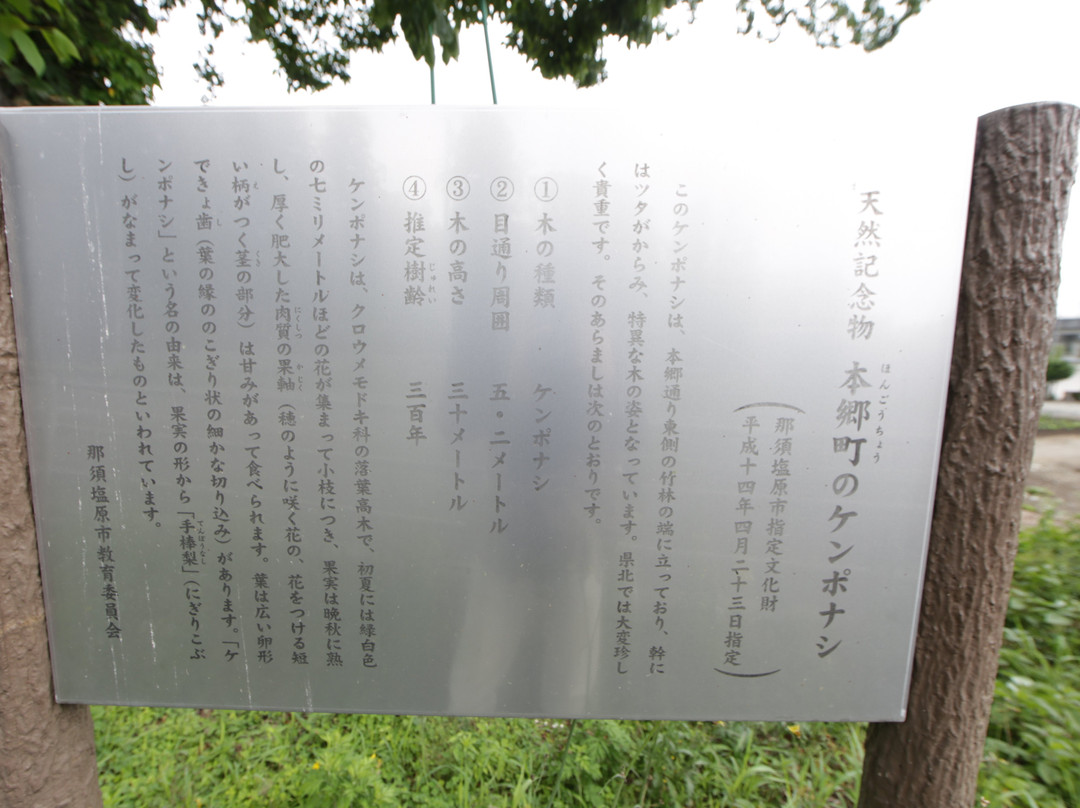 天然記念物 本郷町のケンポナシ
ほんごうちょう
那須塩原市指定文化財
平成十四年四月二十三日指定
このケンポナシは、本郷通り東側の竹林の端に立っており、幹に
はツタがからみ、特異な木の姿となっています。県北では大変珍し
く貴重です。そのあらましは次のとおりです。
① 木の種類 ケンポナシ
② 目通り周囲 五・二メートル
③ 木の高さ 三十メートル
④ 推定樹齢 三百年
じゅれい
ケンポナシは、クロウメモドキ科の落葉高木で、初夏には緑白色
の七ミリメートルほどの花が集まって小枝につき、果実は晩秋に熟
し、厚く肥大した肉質の果軸(穂のように咲く花の、花をつける短
にくしつ かじく
い柄がつく茎の部分)は甘みがあって食べられます。葉は広い卵形
え くき
できょ歯(葉の縁ののこぎり状の細かな切り込み)があります。「ケ
し
ンポナシ」という名の由来は、果実の形から「手棒梨」(にぎりこぶ
てんぼうなし
し)がなまって変化したものといわれています。
那須塩原市教育委員会